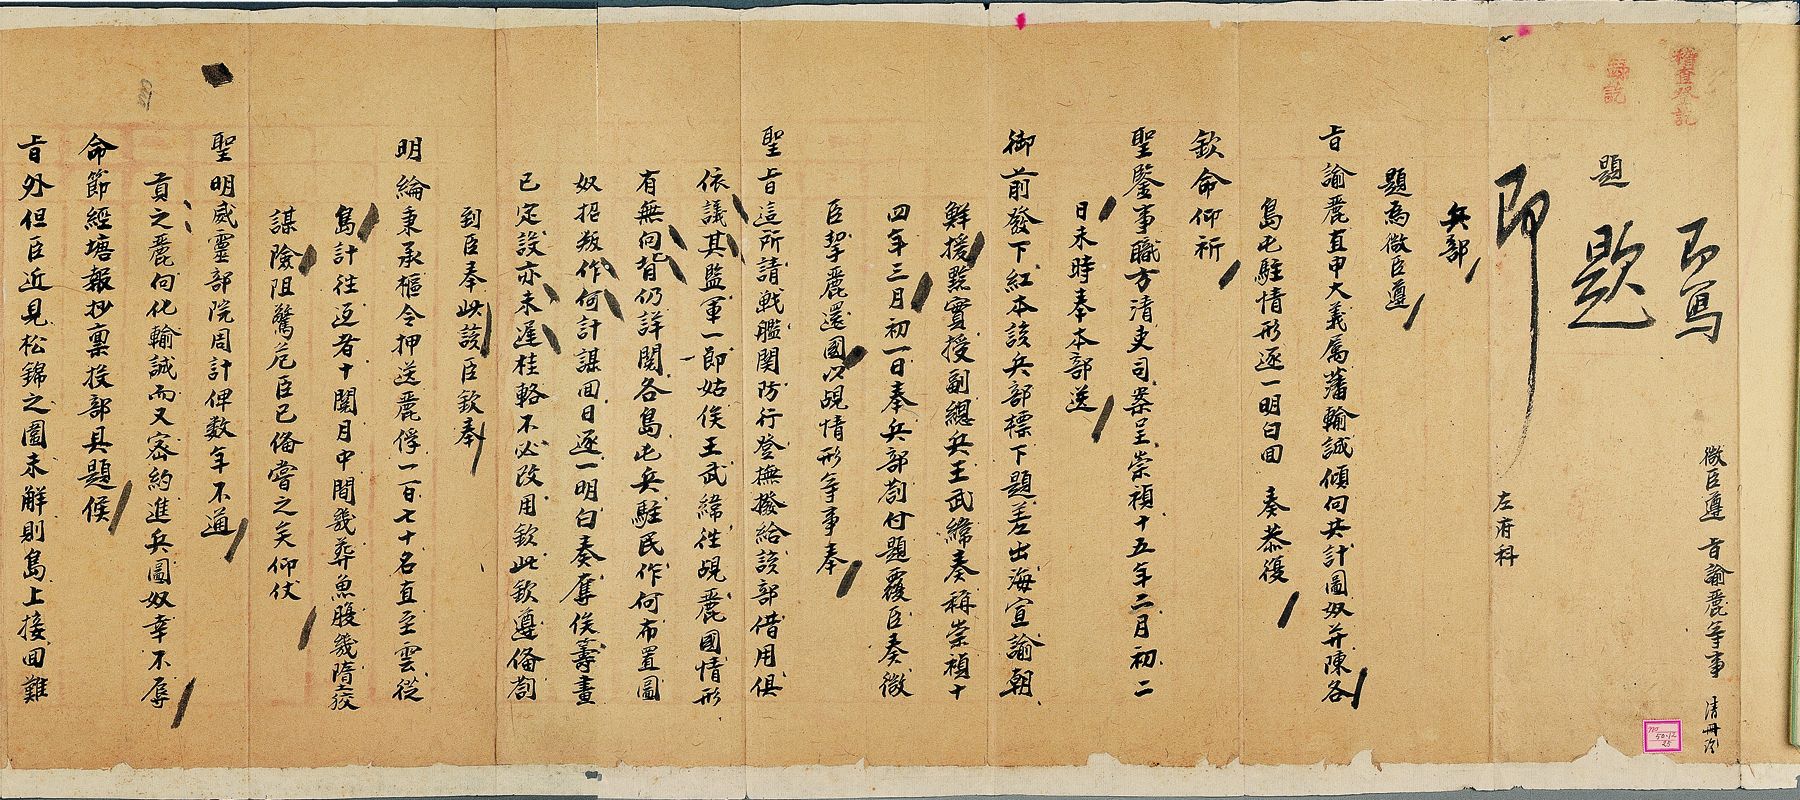 稽查登記
錄訖
即寫
微臣遵　旨諭麗等事　清冊
題
題
即
左府科
兵部
題為微臣遵
旨諭麗直申大義屬藩輸誠傾向共計圖奴并陳各
島屯駐情形逐一明白回　奏恭復
欽命仰祈
聖鑒事職方清吏司案呈崇禎十五年二月初二
日未時奉本部送
御前發下紅本該兵部標下題差出海宣諭朝
鮮援黔實授副總兵王武緯奏稱崇禎十
四年三月初一日奉兵部劄付題覆臣奏微
臣挈麗還國以覘情形等事奉
聖旨這所請戰艦關防行登撫撥給該部借用俱
依議其監軍一節姑俟王武緯往覘麗國情形
有無向背仍詳閱各島屯兵駐民作何布置圖
奴招叛作何計謀回日逐一明白奏奪俟籌畫
已定設亦未遲桂輅不必改用欽此欽遵備劄
到臣奉此該臣欽奉
明綸秉承樞令押送麗俘一百七十名直至雲從
島計往返者十閱月中間幾葬魚腹幾隋交
謀險阻驚危臣已備嘗之矣仰仗
聖明威靈部院周計俾數年不通
貢之麗向化輸誠而又密約進兵圖奴幸不辱
命節經塘報抄稟投部具題候
旨外但臣近見松錦之圍未解則島上接回難